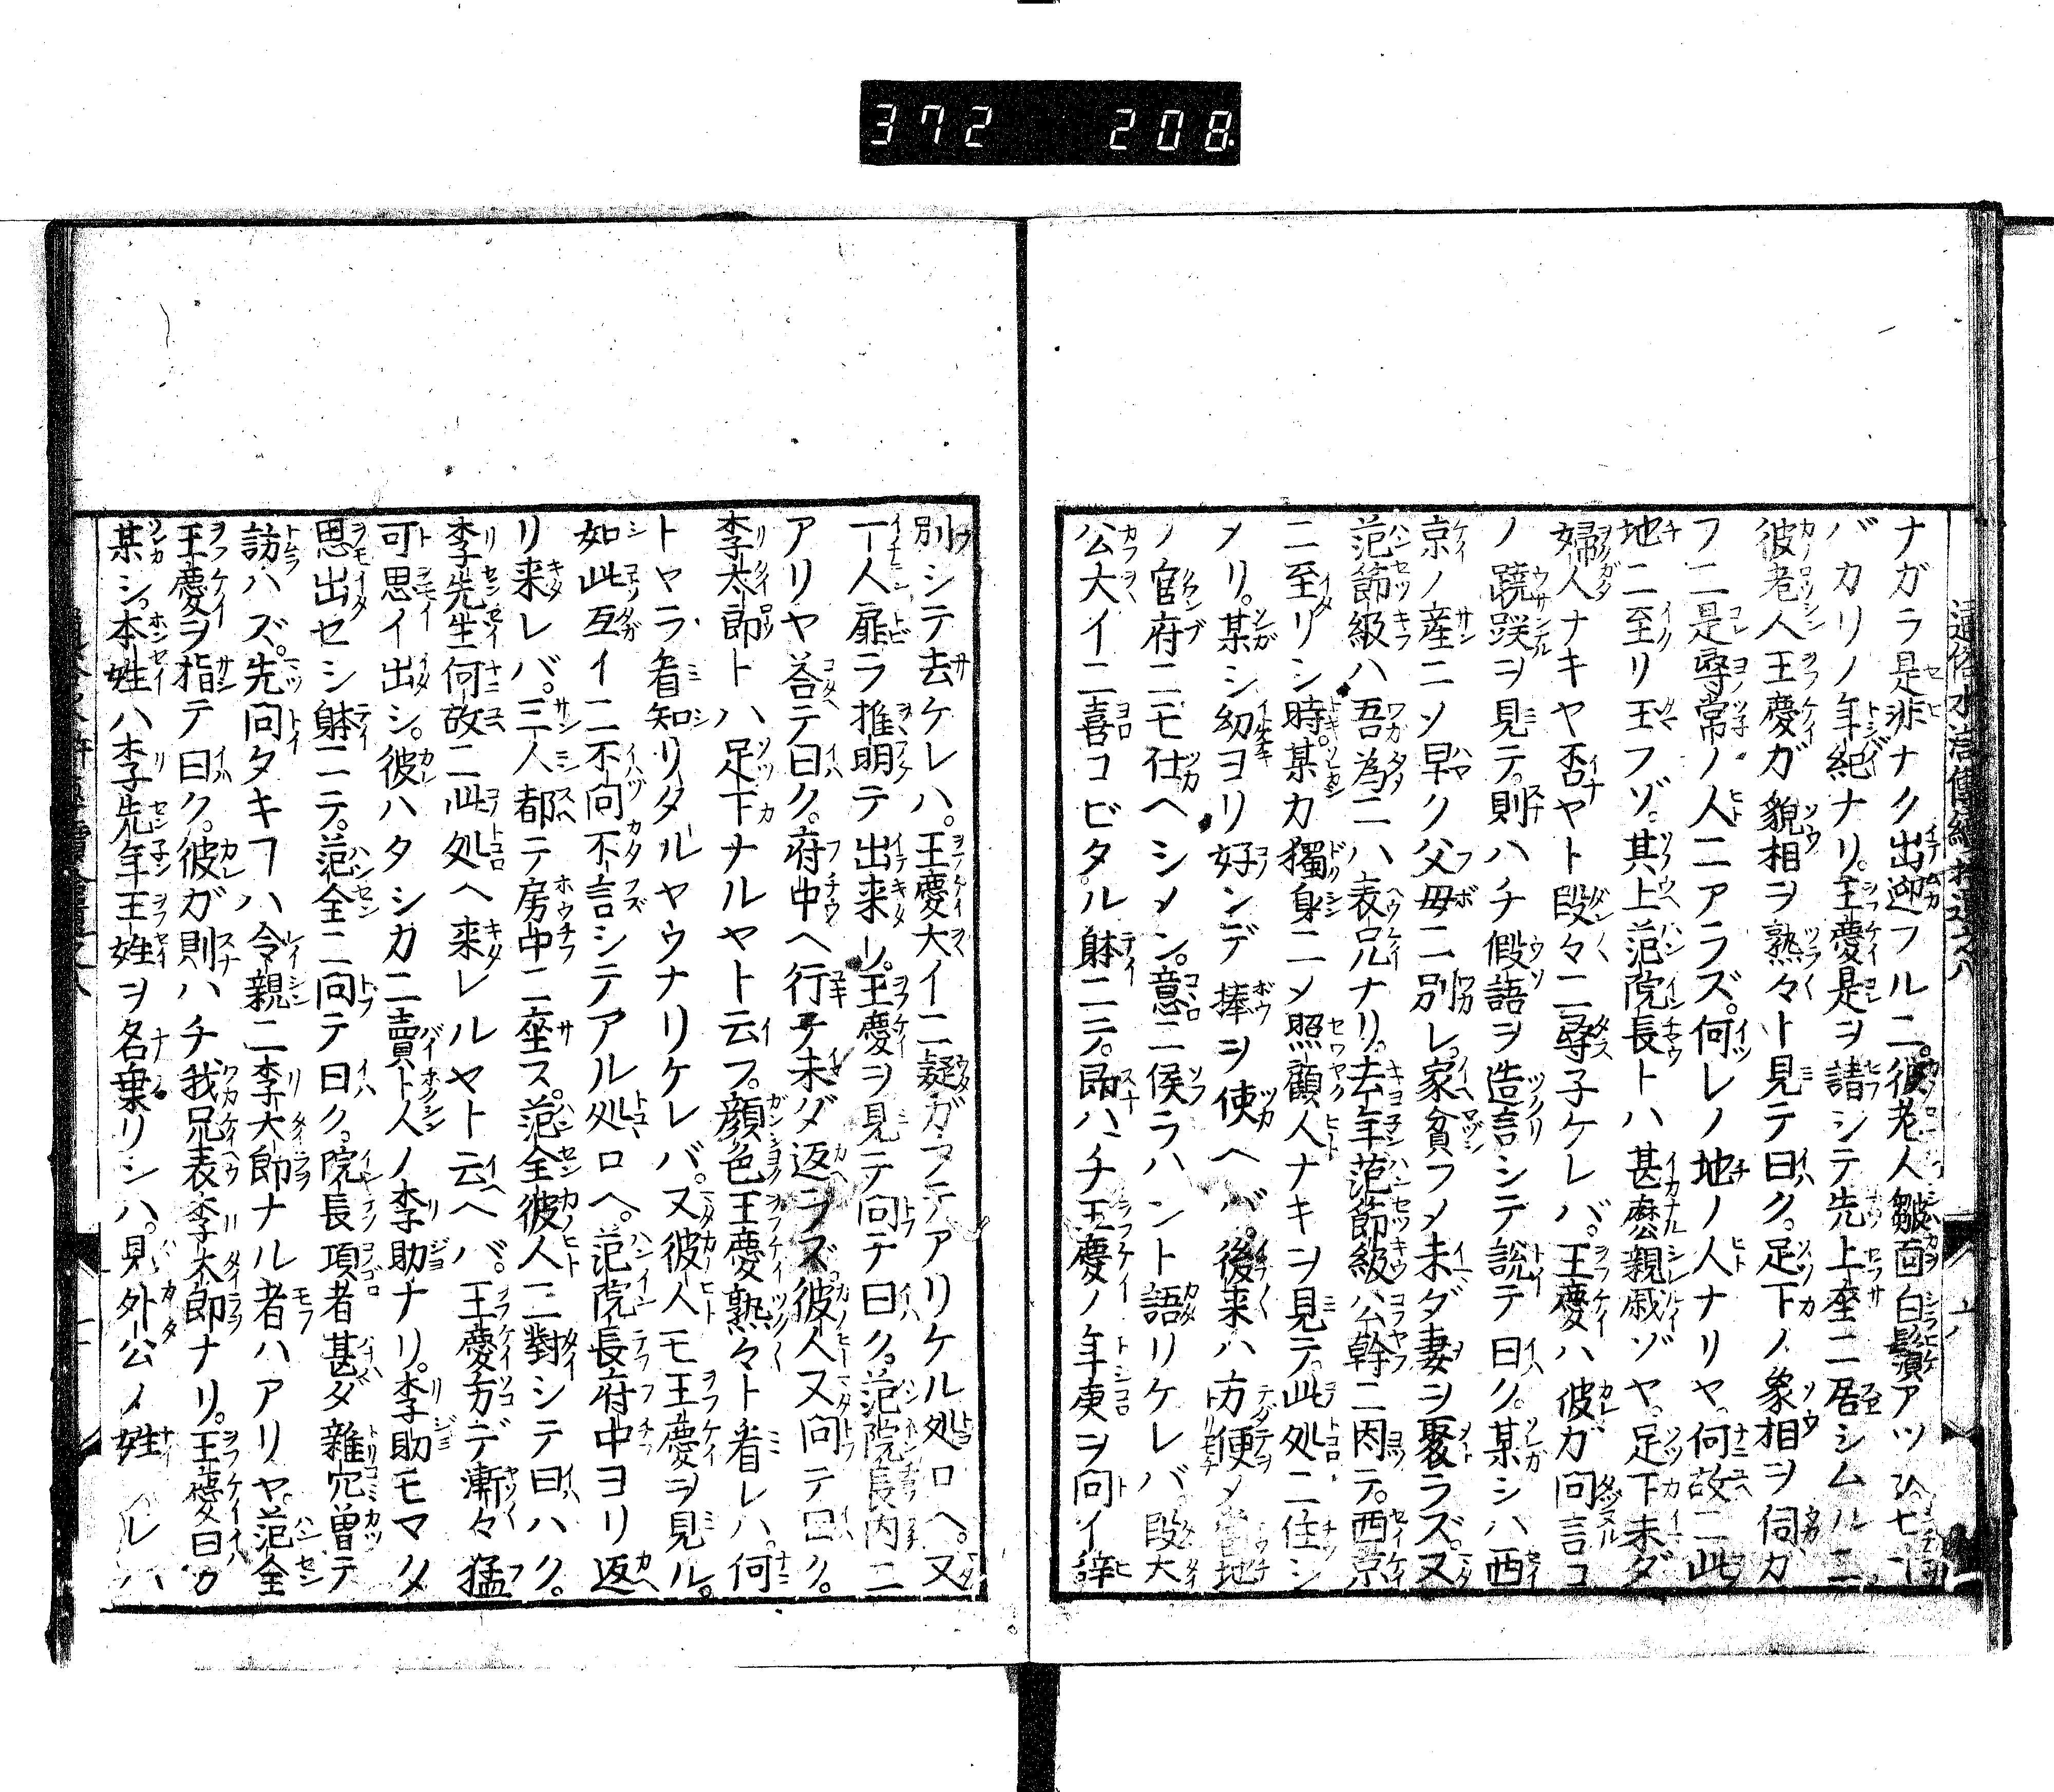 372 208
ナガラ是非ナク出迎フルニ。彼老人皺面白鬚アツ
バカリノ年紀ナリ。王慶是ヲ請シテ先上座ニ居シムルニ
彼老人王慶ガ貌相ヲ熟々ト見テ曰ク。足下ノ象相ヲ伺カ
フニ是尋常ノ人ニアラズ。何レノ地ノ人ナリヤ。何故ニ此
地ニ至リ王フゾ。其上范院長トハ甚麽親戚ゾヤ。足下未ダ
婦人ナキヤ否ヤト段々ニ尋子ケレバ。王慶ハ彼ガ問言コ
ノ蹺蹊ヲ見テ。則ハチ假語ヲ造言シテ説テ曰ク。某シハ西
京ノ産ニソ早ク父母ニ別レ。家貧フメ未ダ妻ヲ娶ラズ。又
范節級ハ吾為ニハ表兄ナリ。去年范節級公幹ニ因テ。西京
ニ至リシ時某カ獨身ニメ照顧人ナキヲ見テ。此処ニ住シ
メリ。某シ幼ヨリ好ンデ捧ヲ使ヘバ。後来ハ方便メ當地
ノ官府ニモ仕ヘシメン。意ニ候ラハント語リケレバ。段大
公大イニ喜コビタル躰ニテ。即ハチ王慶ノ年庚ヲ問イ辞
別シテ去ケレハ。王慶大イニ疑ガフテアリケル処ロヘ。又
一人扉ラ推明テ出来レ。王慶ヲ見テ問テ曰ク。范院長内ニ
アリヤ荅テ曰ク。府中ヘ行テ未ダ返ラズ。彼人又問テ曰ク。
李太郎トハ足下ナルヤト云フ。顔色王慶熟々ト看レハ。何
トヤラ看知リタルヤウナリケレバ。又彼人モ王慶ヲ見ル。
如此互イニ不問不言シテアル処ロヘ。范院長府中ヨリ返
リ来レバ。三人都テ房中ニ座ス。范全彼人ニ對シテ曰ハク。
李先生何故ニ此処ヘ来レルヤト云ヘバ。王慶方デ漸々猛
可思イ出シ。彼ハタシカニ賣ト人ノ李助ナリ。李助モマタ
思出セシ躰ニテ。范全ニ問テ曰ク。院長項者甚ダ雑冗曽テ
訪ハズ。先問タキフハ令親ニ李大郎ナル者ハアリヤ。范全
王慶ヲ指テ曰ク。彼ガ則ハチ我兄表李太郎ナリ。王慶曰ク
某シ本姓ハ李先年王姓ヲ名乗リシハ。見外公ノ姓 レハ